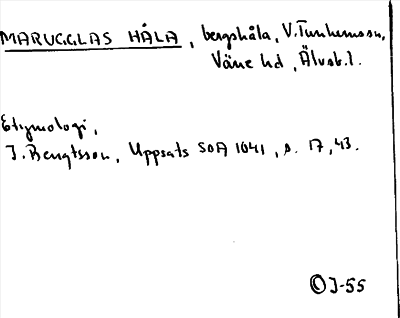 MARUGGLAS HÅLA, bergshåla, V. Tunhems sn,
Väne hd, Älvsb. l.
Etymologi,
J. Bengtsson, Uppsats SOA 1041, s. 17, 43.
© J-55